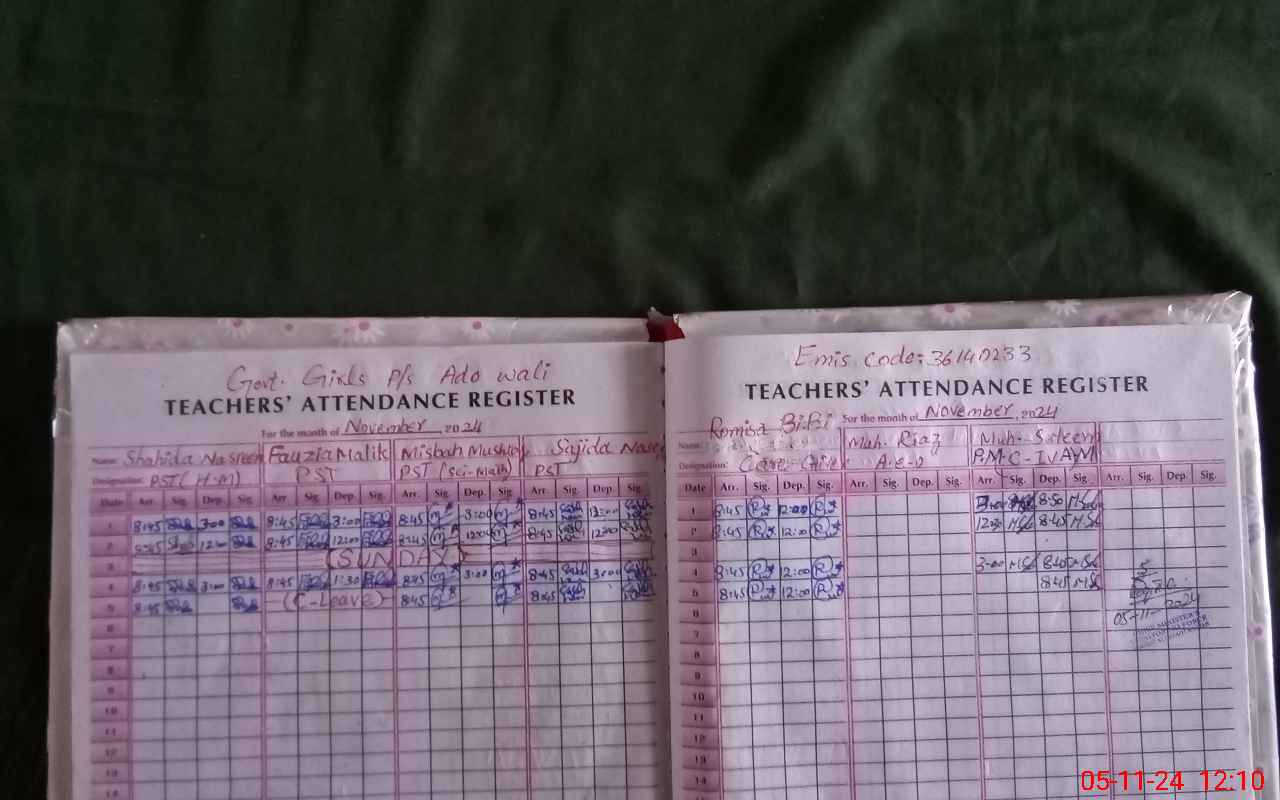 Govt. Girls P/s Ado wali
TEACHERS' ATTENDANCE REGISTER
For the month of November, 2024
Name: Shahida Nasreen Fauzia Malik Misbah Mushtaq Sajida Nasee
Designation: PST (H.M) PST PST (Sci-Math) PST
Date Arr. Sig. Dep. Sig. Arr. Sig. Dep. Sig. Arr. Sig. Dep. Sig. Arr. Sig. Dep. Sig.
1 8:45 3:00 8:45 3:00 8:45 3:00 8:45 3:00
2 8:45 12:00 8:45 12:00 8:45 12:00 8:45 12:00
3 (SUNDAY)
4 8:45 3:00 8:45 1:30 8:45 3:00 8:45 3:00
5 8:45 (C-Leave) 8:45 8:45
6
7
8
9
10
11
12
13
Emis code: 36140233
TEACHERS' ATTENDANCE REGISTER
For the month of November, 2024
Name: Romisa BiBi Muh. Riaz Muh. Saleem
Designation: Care Giver A.E.O P.M.C-IVAYM
Date Arr. Sig. Dep. Sig. Arr. Sig. Dep. Sig. Arr. Sig. Dep. Sig. Arr. Sig. Dep. Sig.
1 8:45 12:00 8:50
2 8:45 12:00 12:30 8:45
3
4 8:45 12:00 3:00 8:45
5 8:45 12:00 8:45
6 05-11-2024
7
8
9
10
11
12
13
14
05-11-24 12:10